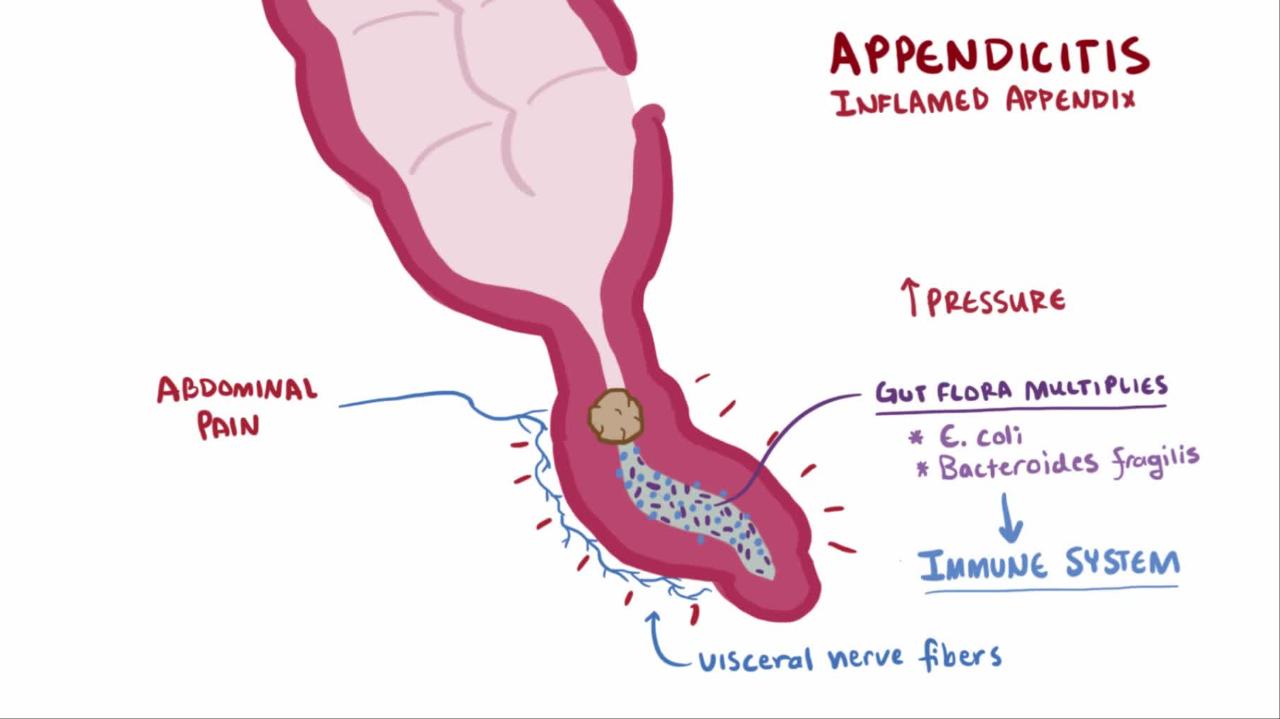 APPENDICITIS
INFLAMED APPENDIX
↑ PRESSURE
ABDOMINAL
PAIN
GUT FLORA MULTIPLIES
* E. coli
* Bacteroides fragilis
IMMUNE SYSTEM
visceral nerve fibers